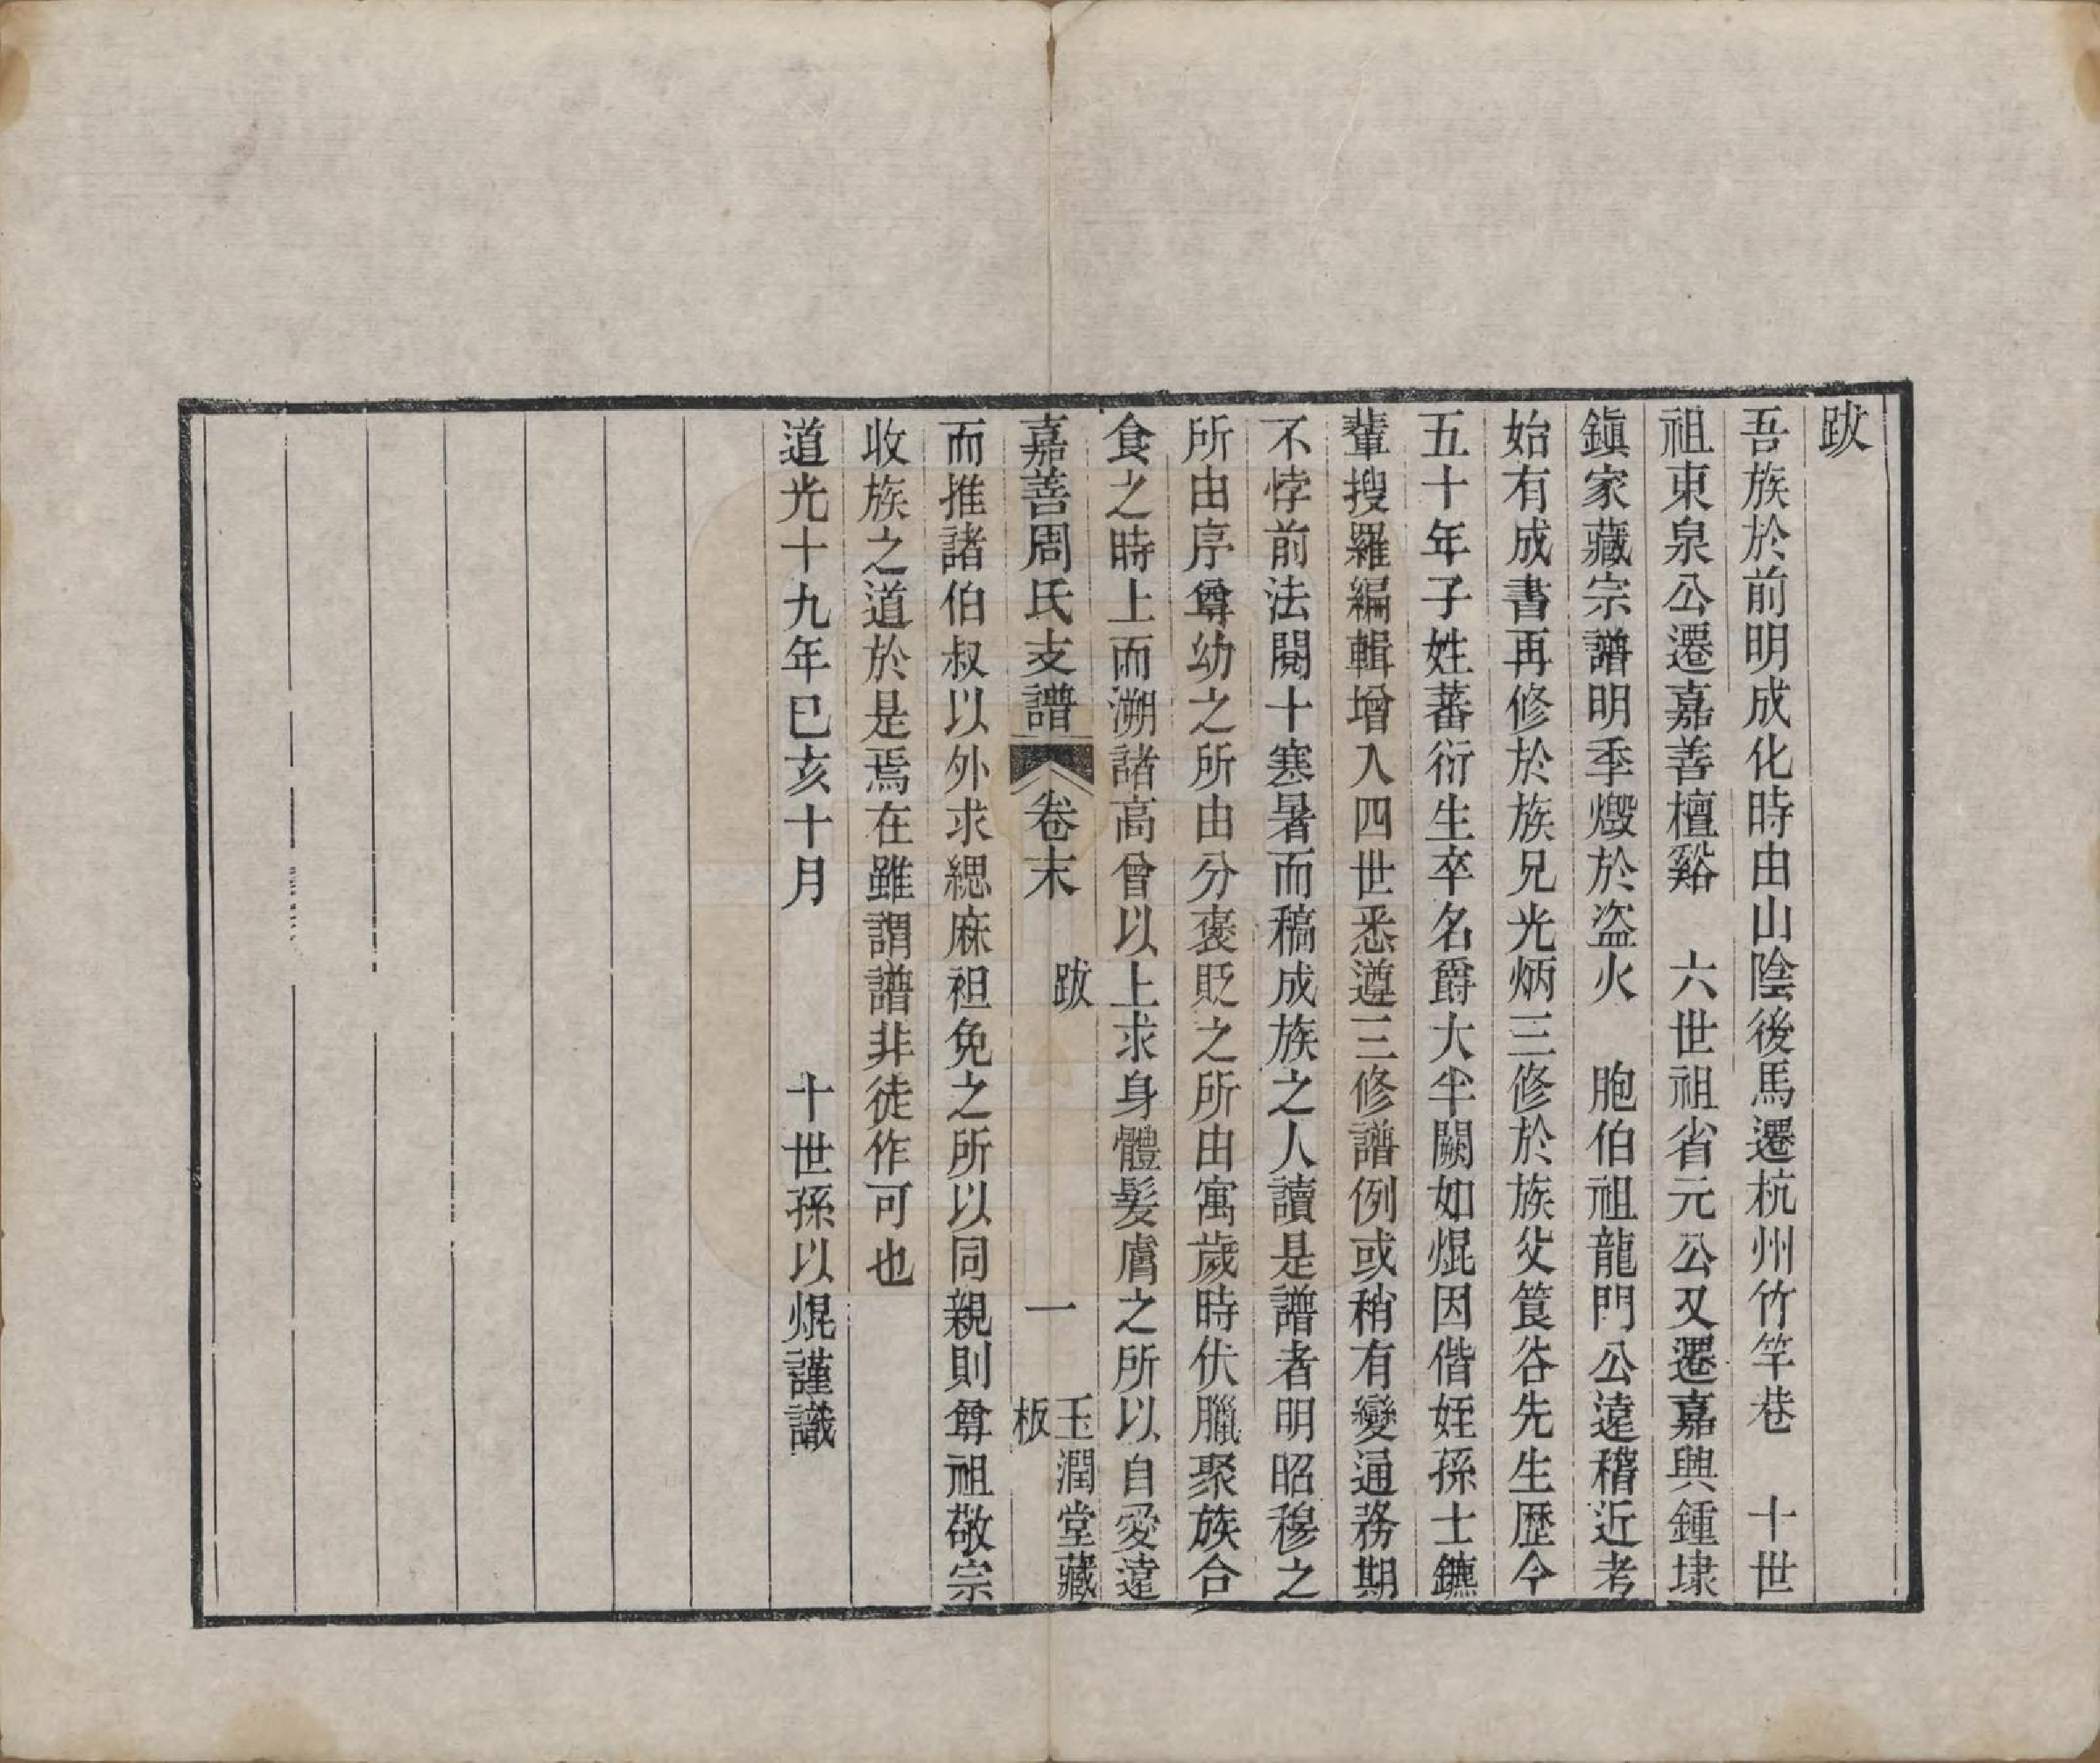 跋
吾族於前明成化時由山陰後馬遷杭州竹竿巷　十世
祖東泉公遷嘉善檀谿　六世祖省元公又遷嘉興鍾埭
鎭家藏宗譜明季燬於盜火　胞伯祖龍門公遠稽近考
始有成書再修於族兄光炳三修於族父筤谷先生歷今
五十年子姓蕃衍生卒名爵大半闕如焜因偕姪孫士鑣
輩搜羅編輯增入四世悉遵三修譜例或稍有變通務期
不悖前法閱十寒暑而稿成族之人讀是譜者明昭穆之
所由序尊幼之所由分褒貶之所由寓歲時伏臘聚族合
食之時上而溯諸高曾以上求身體髮膚之所以自愛遠
嘉善周氏支譜　卷末　跋　一　玉潤堂藏板
而推諸伯叔以外求緦麻袒免之所以同親則尊祖敬宗
收族之道於是焉在雖謂譜非徒作可也
道光十九年已亥十月　十世孫以焜謹識